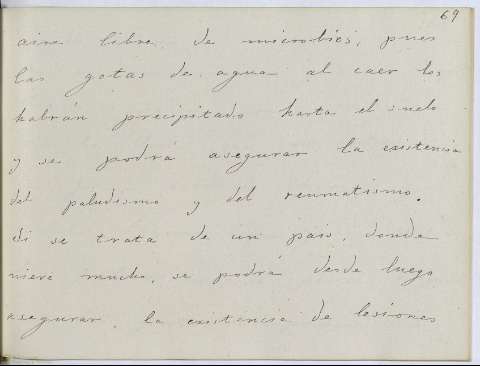 69
aire libre de microbios, pues
las gotas de agua al caer los
habrán precipitado hasta el suelo
y se podrá asegurar la existencia
del paludismo y del reumatismo.
Si se trata de un pais, donde
nieve mucho, se podrá desde luego
asegurar, la existencia de lesiones